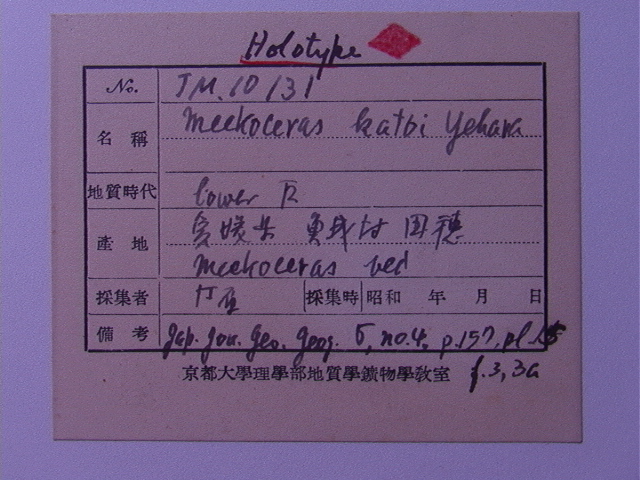 Holotype
No. JM. 10131
名稱 Meekoceras katoi Yehara
地質時代 lower R
產地 愛媛县 魚成村 田穂
meekoceras bed
採集者 採集時 昭和 年 月 日
備考 Jap. Jou. Geo. Geog. 5, no.4, p.157, pl.15
f.3, 3a
京都大學理學部地質學鑛物學教室